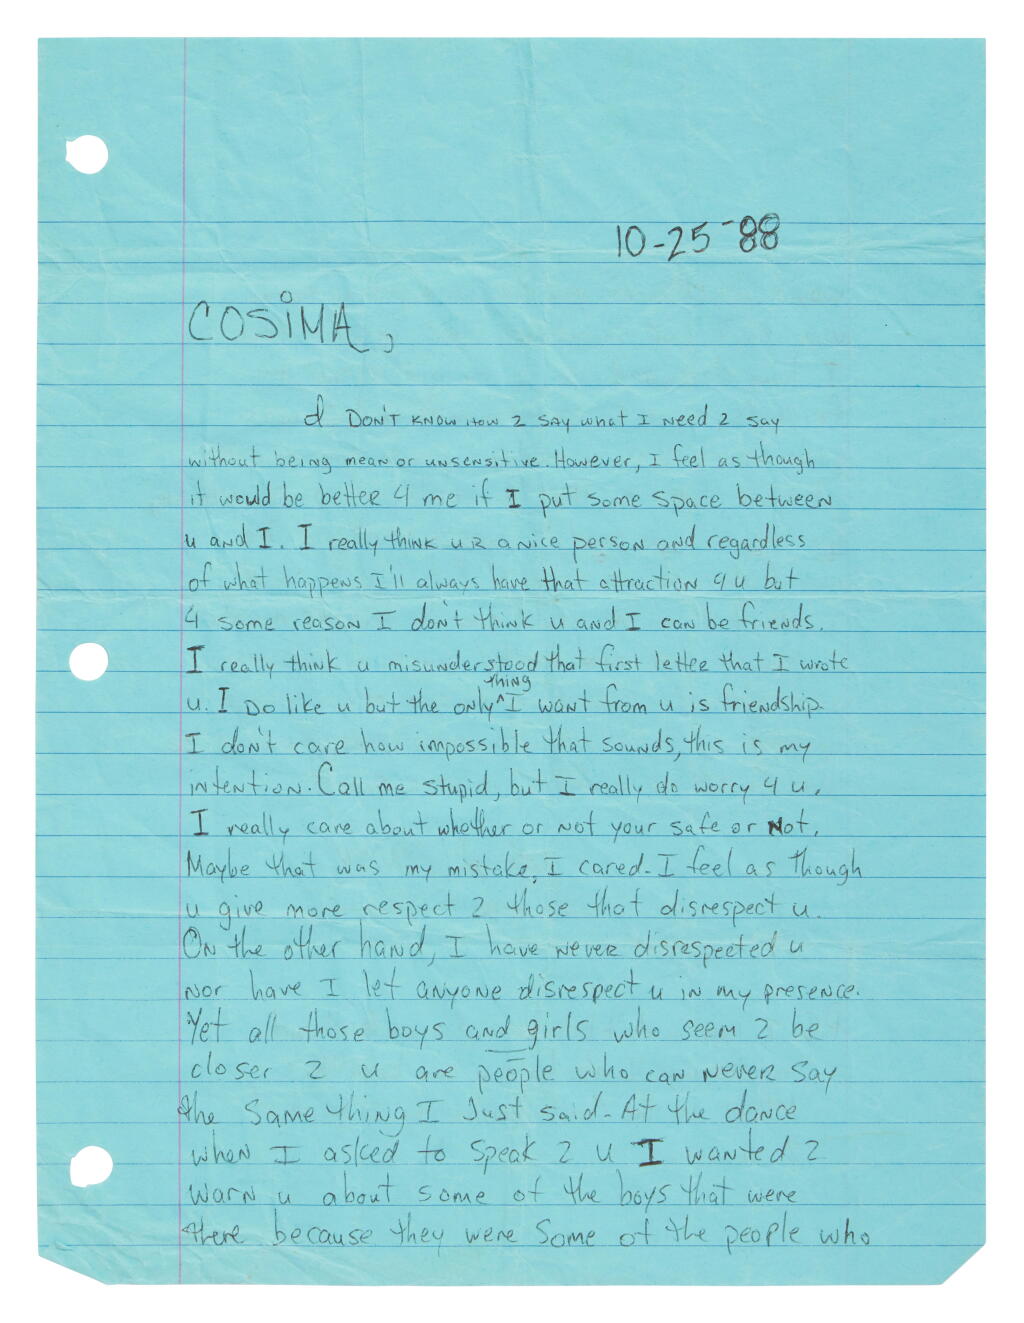 10-25-88
COSiMA,
I DON'T KNOW HOW 2 SAY what I need 2 say
without being mean or unsensitive. However, I feel as though
it would be better 4 me if I put some space between
u and I. I really think u R a nice person and regardless
of what happens I'll always have that attraction 4 u but
4 some reason I don't think u and I can be friends.
I really think u misunderstood that first letter that I wrote
u. I Do like u but the only ^thing I want from u is friendship.
I don't care how impossible that sounds, this is my
intention. Call me stupid, but I really do worry 4 u.
I really care about whether or not your safe or Not.
Maybe that was my mistake, I cared. I feel as though
u give more respect 2 those that disrespect u.
On the other hand, I have never disrespected u
nor have I let anyone disrespect u in my presence.
Yet all those boys and girls who seem 2 be
closer 2 u are people who can never say
the same thing I Just said. At the dance
when I asked to speak 2 u I wanted 2
warn u about some of the boys that were
there because they were some of the people who